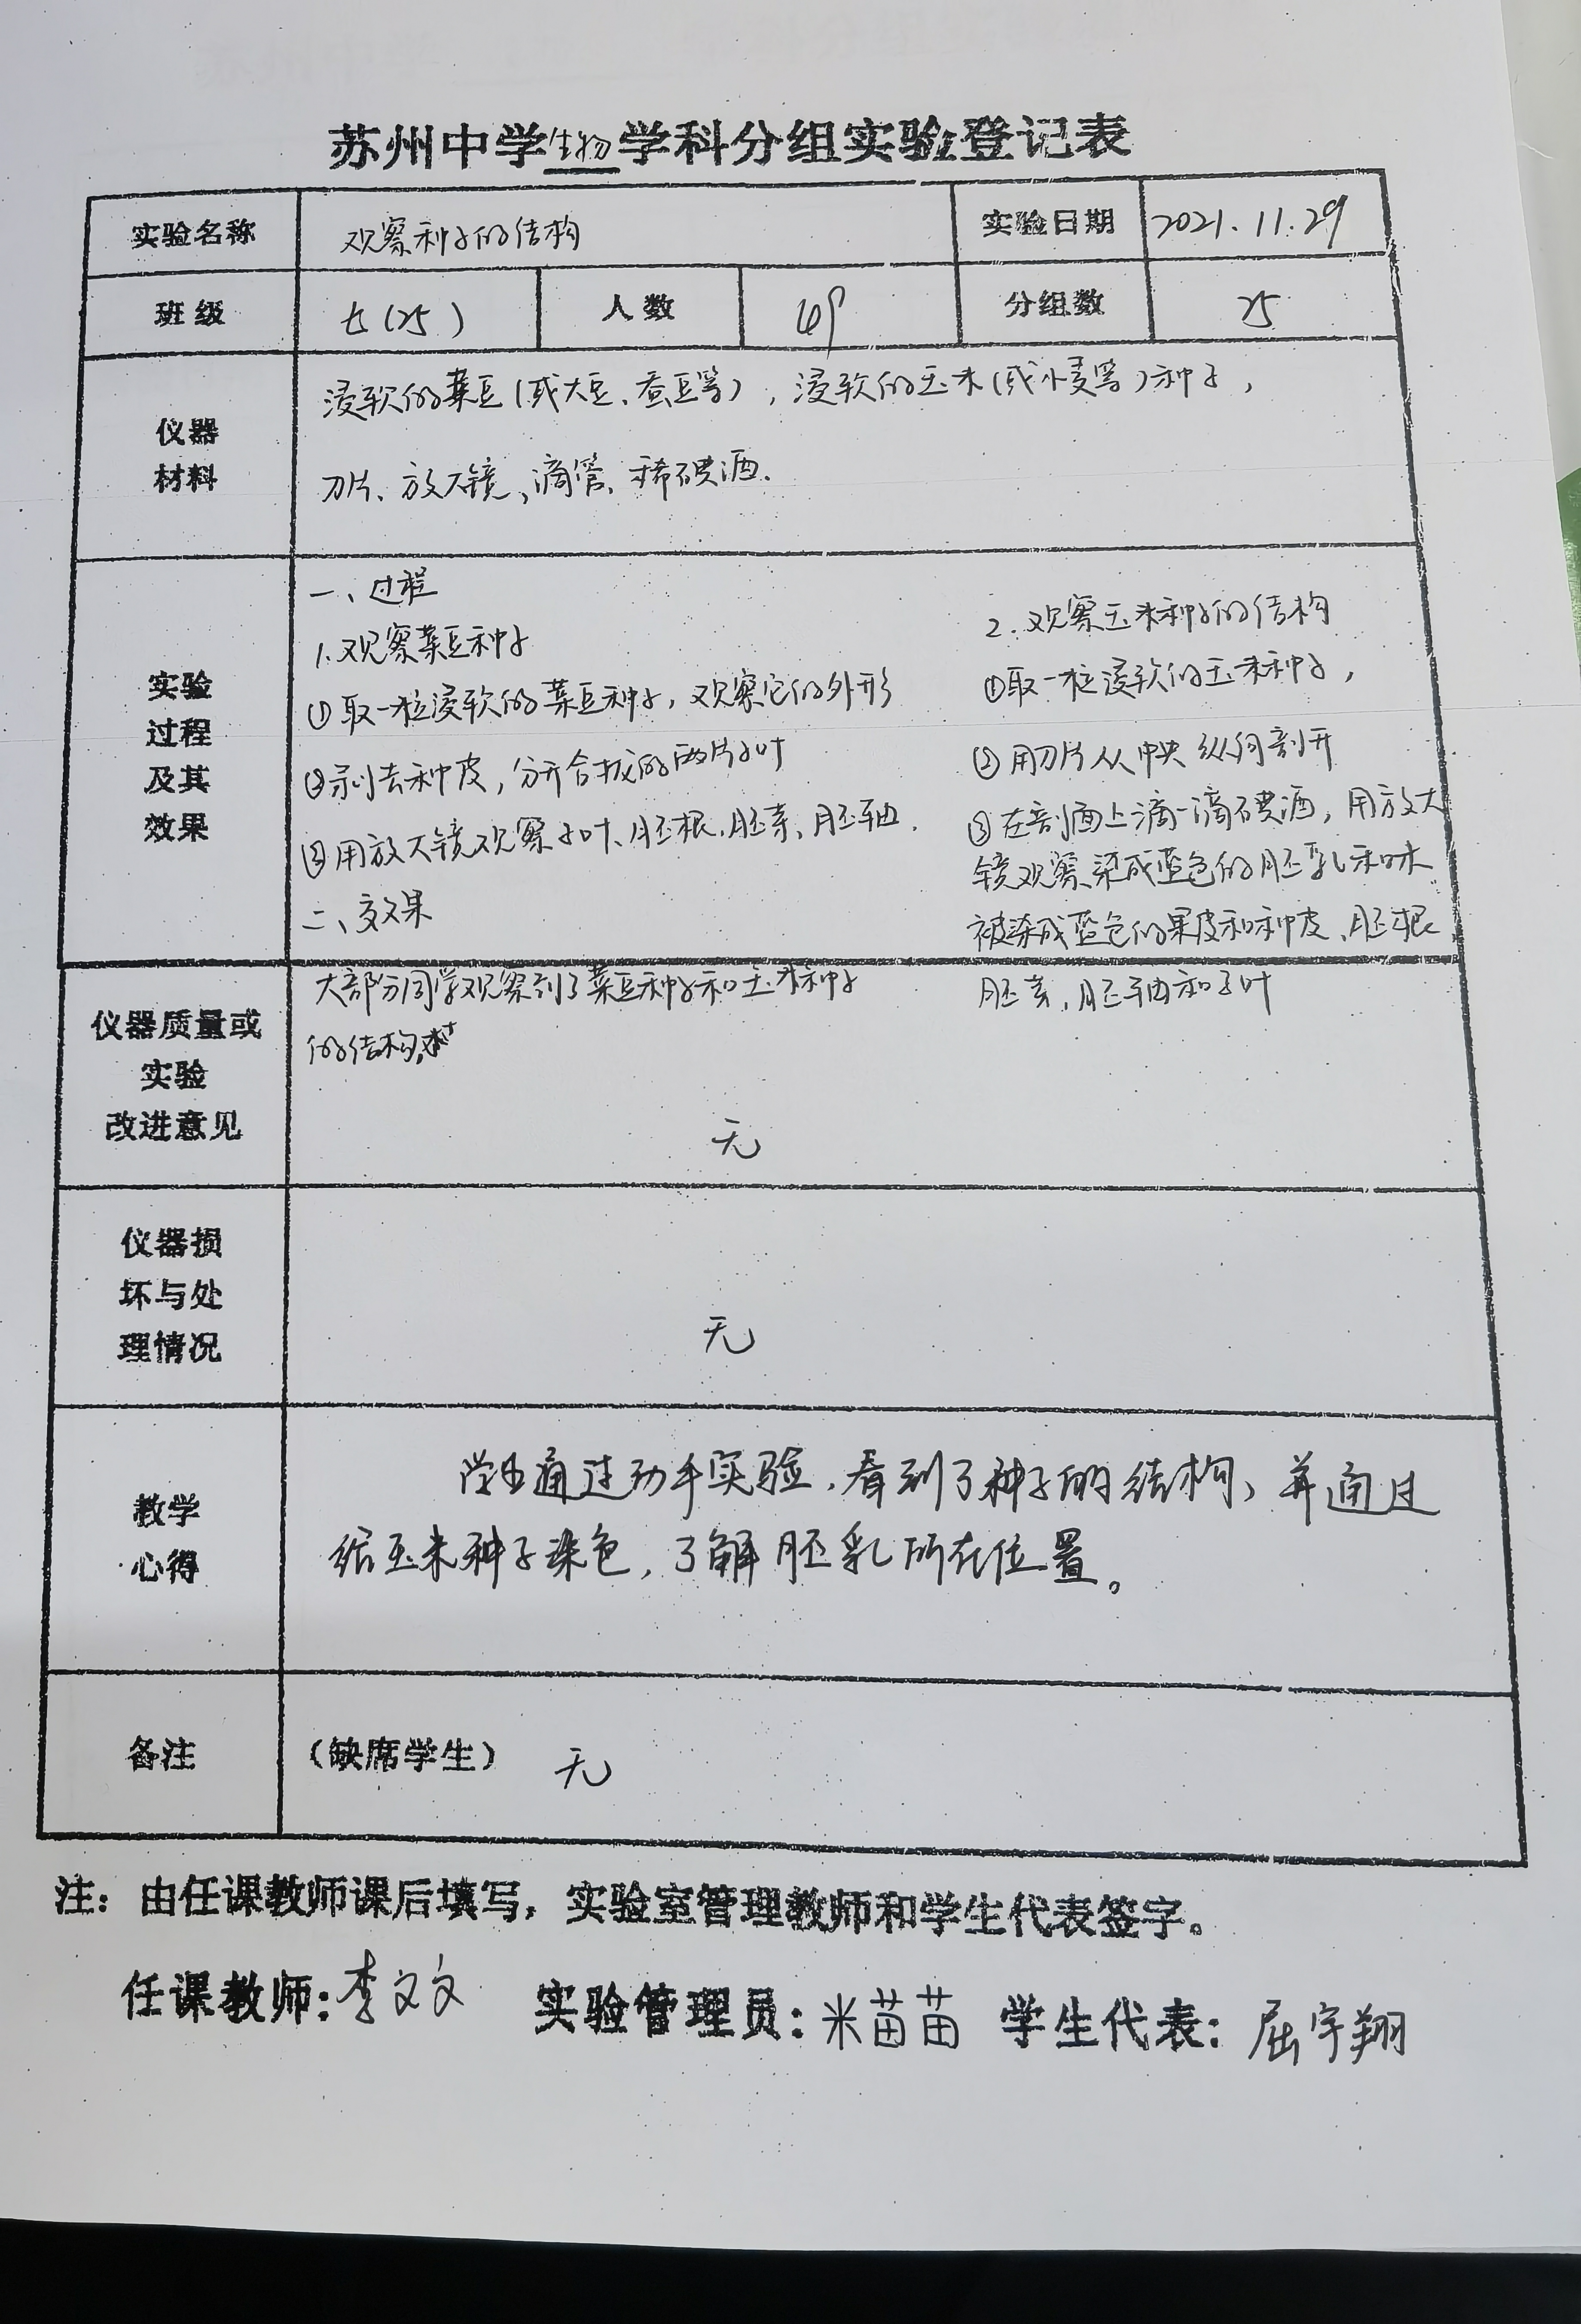 苏州中学生物学科分组实验登记表
实验名称 观察种子的结构 实验日期 2021.11.29
班级 七(25) 人数 49 分组数 25
仪器
材料
浸软的菜豆(或大豆、蚕豆等),浸软的玉米(或小麦等)种子,
刀片、放大镜、滴管、稀碘酒.
实验
过程
及其
效果
一、过程
1.观察菜豆种子
①取一粒浸软的菜豆种子,观察它的外形
②剥去种皮,分开合拢的两片子叶
③用放大镜观察子叶、胚根、胚芽、胚轴.
二、效果
大部分同学观察到了菜豆种子和玉米种子
的结构.
2.观察玉米种子的结构
①取一粒浸软的玉米种子,
②用刀片从中央纵向剖开
③在剖面上滴一滴碘酒,用放大
镜观察染成蓝色的胚乳和未
被染成蓝色的果皮和种皮、胚根
胚芽,胚轴和子叶
仪器质量或
实验
改进意见
无
仪器损
坏与处
理情况
无
教学
心得
学生通过动手实验,看到了种子的结构,并通过
给玉米种子染色,了解胚乳所在位置。
备注 (缺席学生) 无
注:由任课教师课后填写,实验室管理教师和学生代表签字。
任课教师:李文文 实验管理员:米苗苗 学生代表:屈宇翔